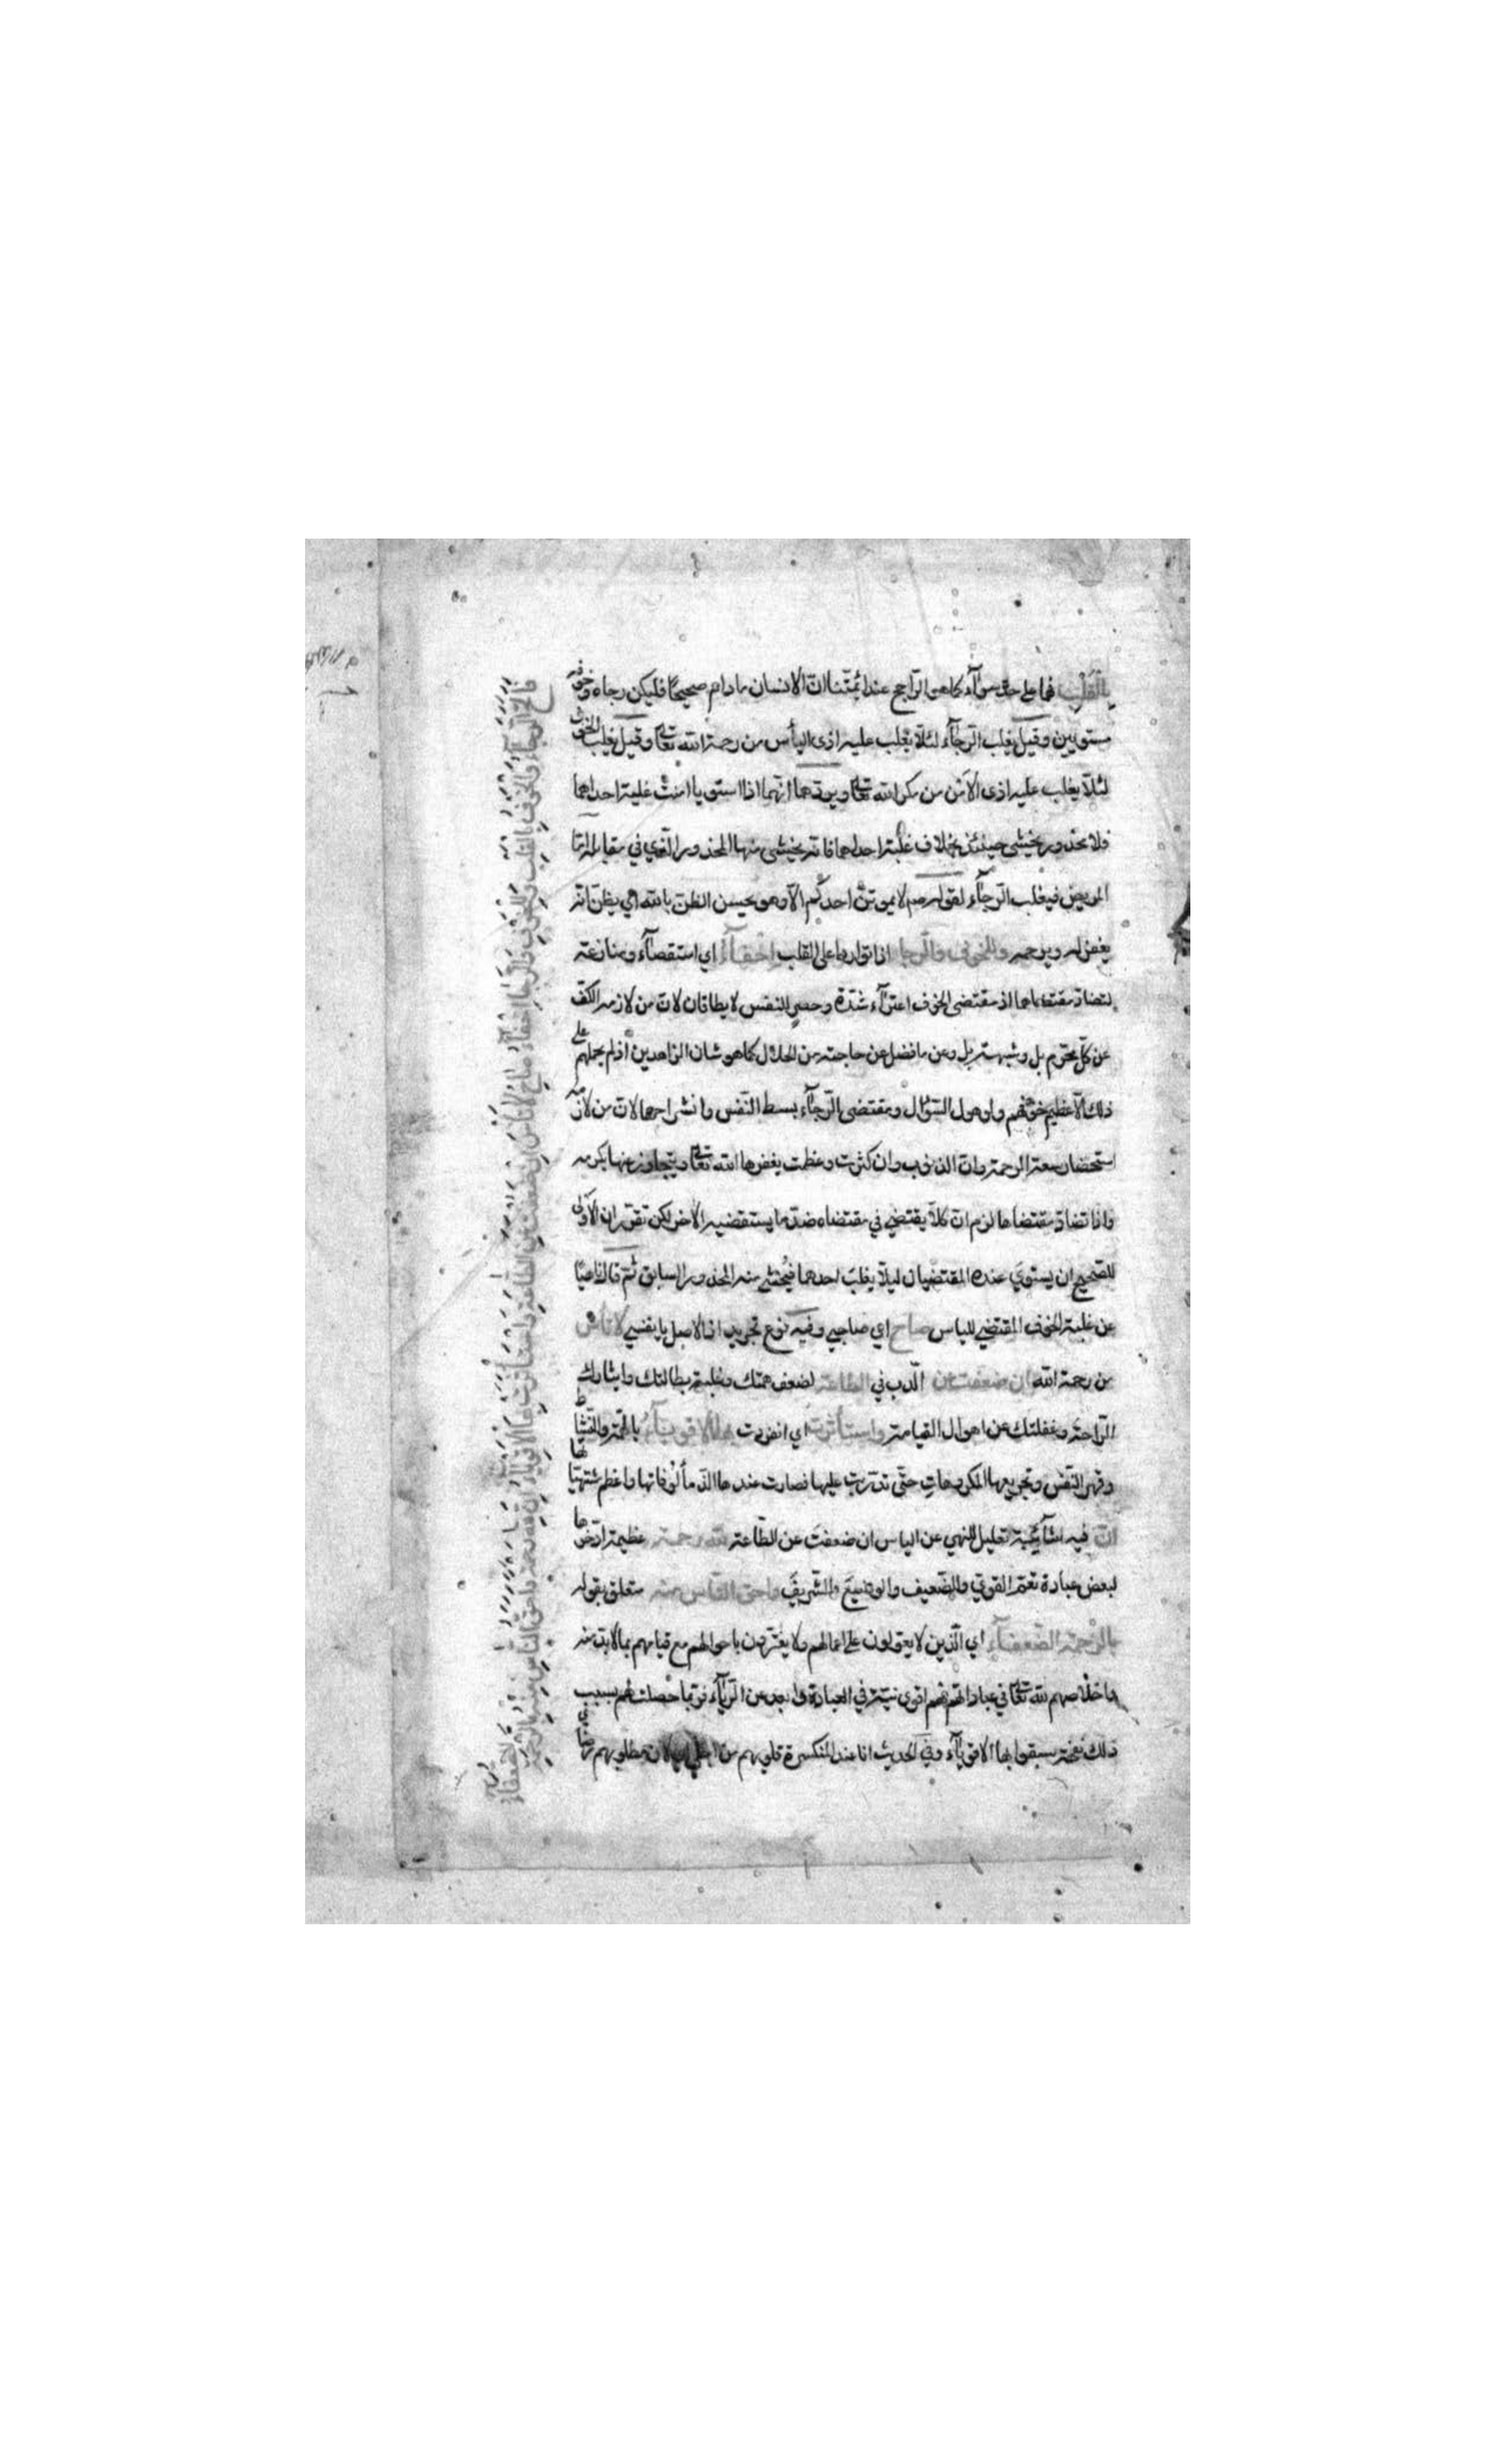 بالقلب فهما على حد سواء كما هو الراجح عند ائمتنا ان الانسان ما دام صحيحا فليكن رجاه وخوفه
مستويين وقيل يغلب الرجاء لئلا يغلب عليه اذى اليأس من رحمة الله تعالى وقيل يغلب الخوف
لئلا يغلب عليه اذى الامن من مكر الله تعالى ويردهما انهما اذا استويا امنت غلبة احداهما
فلا محذور يخشى حينئذ بخلاف غلبة احداهما فانه يخشى منها المحذور الذي في مقابله اما
المريض فيغلب الرجاء لقوله صم لا يموتن احدكم الا وهو يحسن الظن بالله اي يظن انه
يغفر له ويرحمه وللخوف والرجا اذا تواردا على القلب احفاء اي استقصاء ومنازعة
لتضاد مقتضاهما اذ مقتضى الخوف اعتراء شدة وحصر للنفس لا يطاقان لان من لازمه الكف
عن كل محرم بل وشبهة بل وعن ما فضل عن حاجته من الحلال كما هو شان الزاهدين اذ لم يحملهم على
ذلك الا عظيم خوفهم واوهول السؤال ومقتضى الرجاء بسط النفس وانشراحها لان من لازمه
استحضار سعة الرحمة وان الذنوب وان كثرت وعظمت يغفرها الله تعالى ويتجاوز عنها بكرمه
واذا تضاد مقتضاهما لزم ان كلا يقتضي في مقتضاه ضد ما يستقضيه الاخر لكن تقرر ان الاولى
للصحيح ان يستوي عنده المقتضيان ليلا يغلب احدهما فيخشى منه المحذور السابق ثم قال ناهيا
عن غلبة الخوف المقتضي للياس صاح اي صاحبي وفيه نوع تجريد اذ الاصل يا نفسي لا تاس
من رحمة الله ان ضعفت عن الدب في الطاعة لضعف همتك وغلبة بطالتك وايثارك
الراحة وغفلتك عن اهوال القيامة واستأثرت اي انفردت بها الاقوياء بالهمة والنشاط
وقهر النفس وتجريعها المكروهات حتى تدربت عليها فصارت عندها الذ مألوفاتها واعظم مشتهياتها
ان فيه شائبة تعليل للنهي عن الياس ان ضعفت عن الطاعة لله رحمة عظيمة ادخرها
لبعض عباده تعم القوي والضعيف والوضيع والشريف واحق الناس منه متعلق بقوله
بالرحمة الضعفاء اي الذين لا يعولون على اعمالهم ولا يغترون باحوالهم مع قيامهم بما لا بد منه
واخلاصهم لله تعالى في عباداتهم فهم اقوى نية في العبادة وابعد من الرياء فربما حصلت لهم بسبب
ذلك نفحة سبقوا بها الاقوياء وفي الحديث انا عند المنكسرة قلوبهم من اجلي لان مطلوبهم
فالح الرجاء والخوف بالقلب وللخوف والرجا احفاء صاح لا تاس ان ضعفت عن الطاعة واستأثرت بها الاقوياء ان لله رحمة واحق الناس منه بالرحمة
الضعفاء